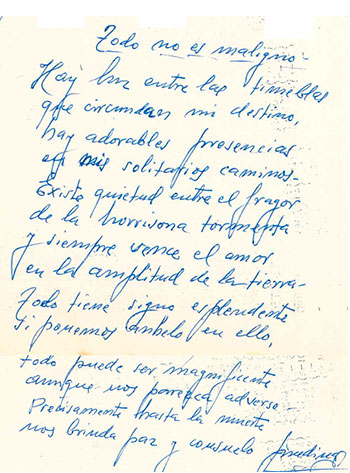 Todo no es maligno-
Hay luz entre las tinieblas
que circundan mi destino,
hay adorables presencias
en mis solitarios caminos-
Existe quietud entre el fragor
de la horrisona tormenta
y siempre vence el amor
en la amplitud de la tierra-
Todo tiene signo esplendente
si ponemos anhelo en ello,
todo puede ser magnificente
aunque nos parezca adverso-
Precisamente hasta la muerte
nos brinda paz y consuelo